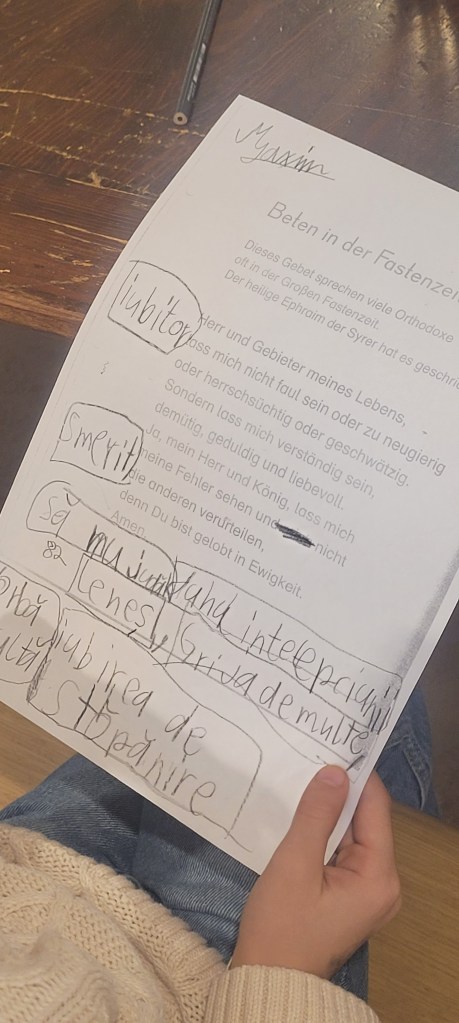 Maxim
Beten in der Fastenzeit
Dieses Gebet sprechen viele Orthodoxe
oft in der Großen Fastenzeit.
Der heilige Ephraim der Syrer hat es geschrie
iubitor
Herr und Gebieter meines Lebens,
lass mich nicht faul sein oder zu neugierig
oder herrschsüchtig oder geschwätzig.
Sondern lass mich verständig sein,
demütig, geduldig und liebevoll.
smerit
Ja, mein Herr und König, lass mich
meine Fehler sehen und nicht
die anderen verurteilen,
denn Du bist gelobt in Ewigkeit.
Amen.
să nu judec
gând
leneș
Grija de multe
iubirea de
stăpânire